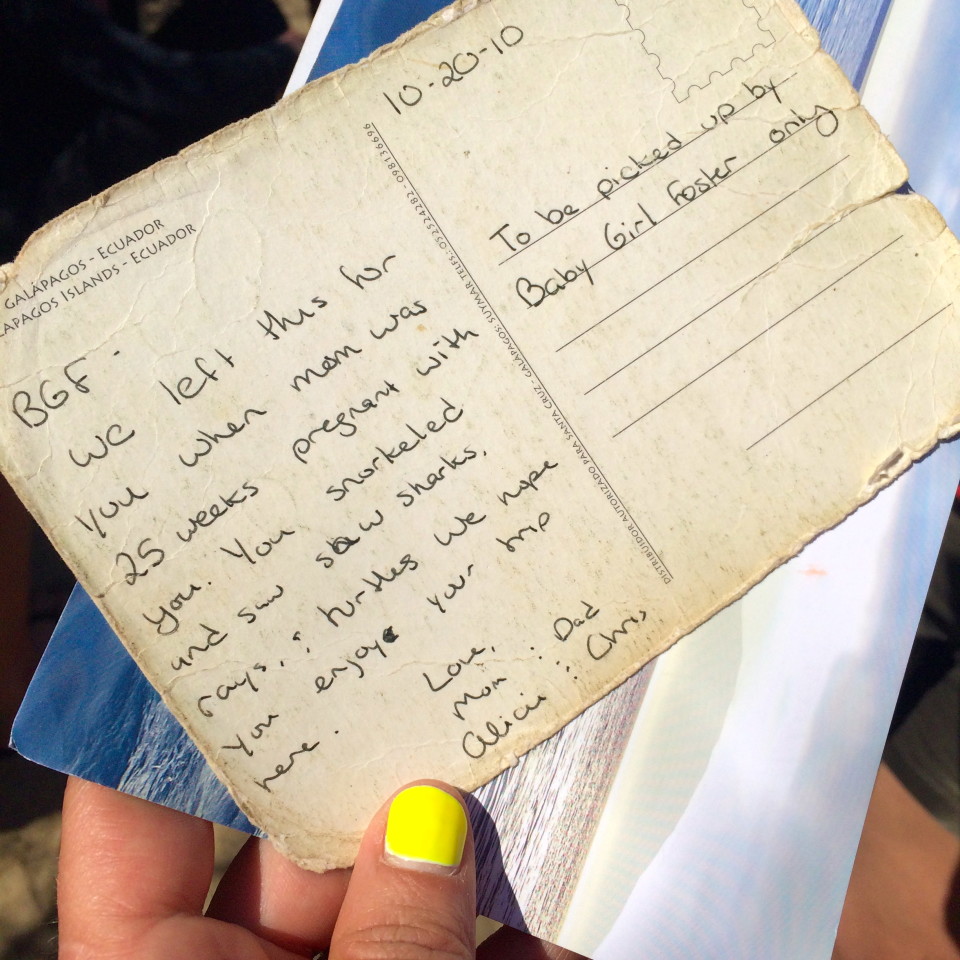 GALÁPAGOS - ECUADOR
LAPAGOS ISLANDS - ECUADOR
10-20-10
BGF -
We left this for
you when mom was
25 weeks pregnant with
you. You snorkeled
and saw saw sharks,
rays, & turtles We hope
you enjoye your trip
here.
Love,
Mom & Dad
Alicia & Chris
DISTRIBUIDOR AUTORIZADO PARA SANTA CRUZ - GALÁPAGOS: SUYMAR TELFS.: 052524282 - 098136696
To be picked up by
Baby Girl Foster only